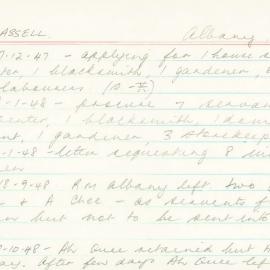 ASSELL. Albany
7-12-47 - applying for 1 house s
ter, 1 blacksmith, 1 gardener,
labourers
-1-48 - procure 7 servan
penter, 1 blacksmith, 1 dom
nt, 1 gardener, 3 storekeep
-1-48 - letter requesting 8 mi
en
18-9-48 R M Albany left two
& A Chee - as servants f
on but not to be sent into
-10-48 - Ah Quee retained but
ay. After few days Ah Quee left